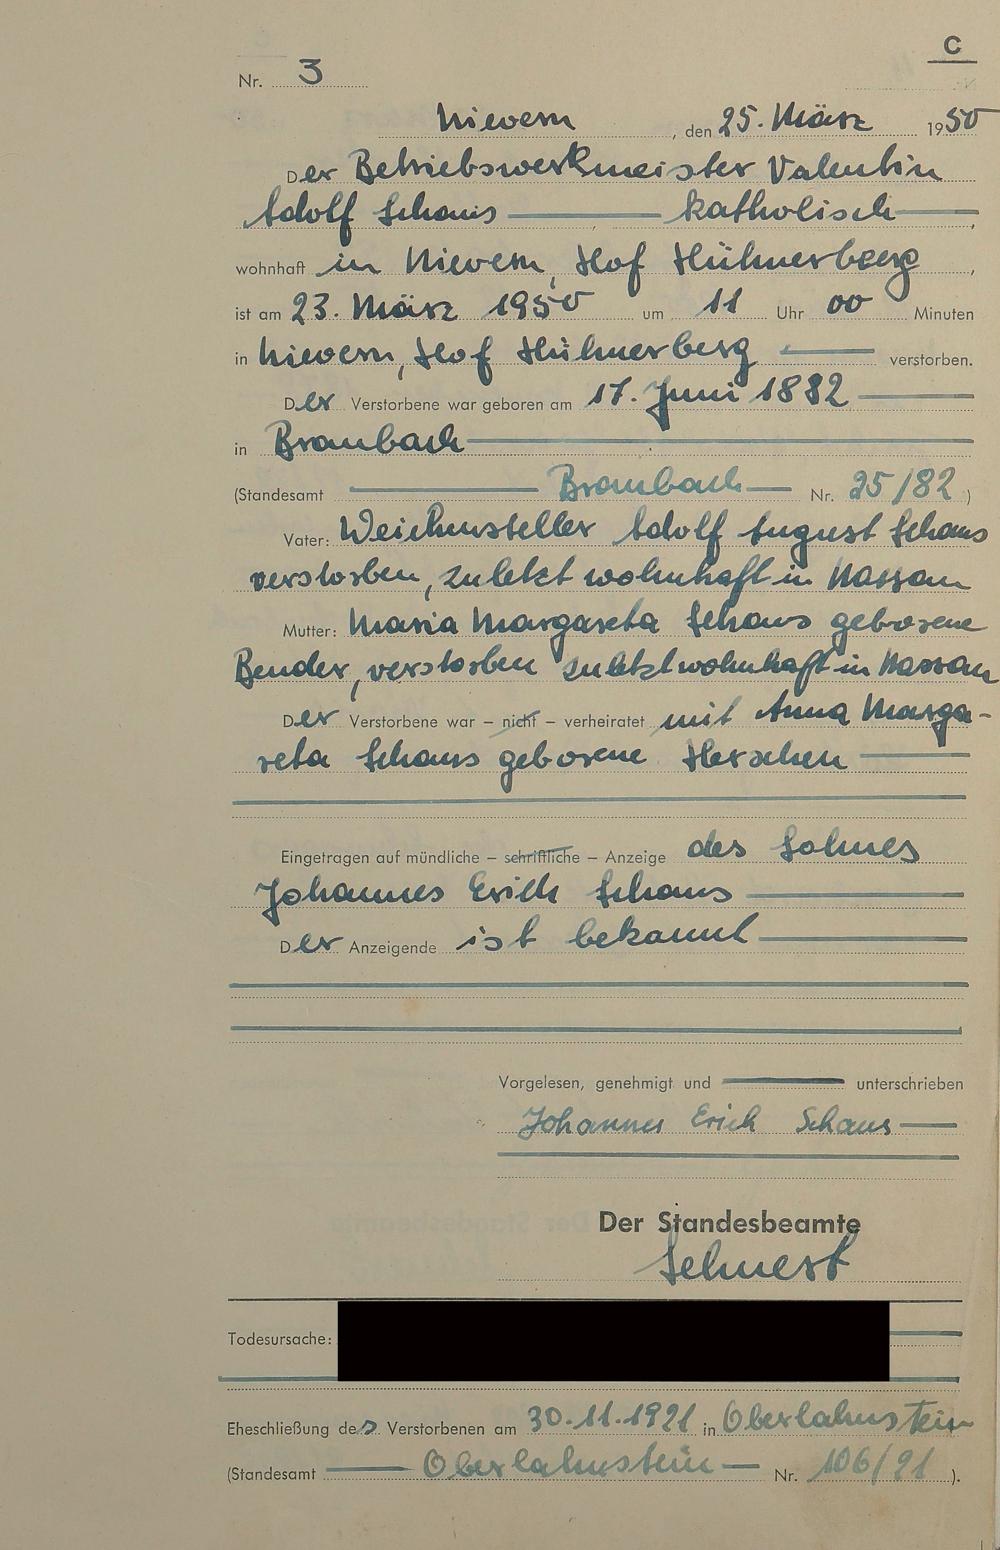 C
Nr. 3
Nievern, den 25. März 1950
Der Betriebswerkmeister Valentin
Adolf Schaus katholisch
wohnhaft in Nievern, Hof Hühnerberg,
ist am 23. März 1950 um 11 Uhr 00 Minuten
in Nievern, Hof Hühnerberg verstorben.
Der Verstorbene war geboren am 17. Juni 1882
in Brambach
(Standesamt Brambach Nr. 25/82)
Vater: Weichensteller Adolf August Schaus
verstorben, zuletzt wohnhaft in Nassau
Mutter: Maria Margareta Schaus geborene
Bender, verstorben zuletzt wohnhaft in Nassau
Der Verstorbene war – nicht – verheiratet mit Anna Marga-
reta Schaus geborene Herschen
Eingetragen auf mündliche – schriftliche – Anzeige des Sohnes
Johannes Erich Schaus
Der Anzeigende ist bekannt
Vorgelesen, genehmigt und unterschrieben
Johannes Erich Schaus
Der Standesbeamte
Todesursache:
Eheschließung des Verstorbenen am 30.11.1921 in Oberlahnstein
(Standesamt Oberlahnstein Nr. 106/21).